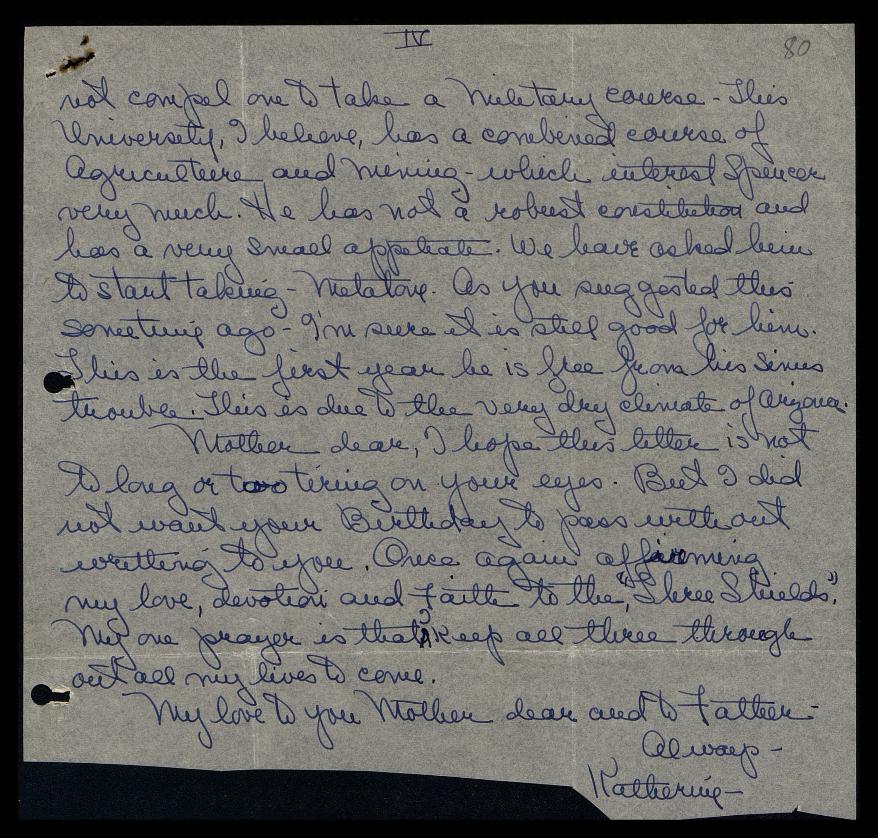 IV
80
not compel one to take a Military course - This
University, I believe, has a combined course of
Agriculture and Mining - which interest Spencer
very much. He has not a robust constitution and
has a very small appetiate. We have asked him
to start taking - Metatone. As you suggested this
sometime ago - I'm sure it is still good for him.
This is the first year he is free from his sinus
trouble. This is due to the very dry climate of Arizona.
Mother dear, I hope this letter is not
to long or too tiring on your eyes. But I did
not want your Birthday to pass without
writting to you. Once again affirming
my love, devotion and Faith to the, "Three Shields".
My one prayer is that I keep all three through
out all my lives to come.
My love to you Mother dear and to Father -
Always -
Katherine -